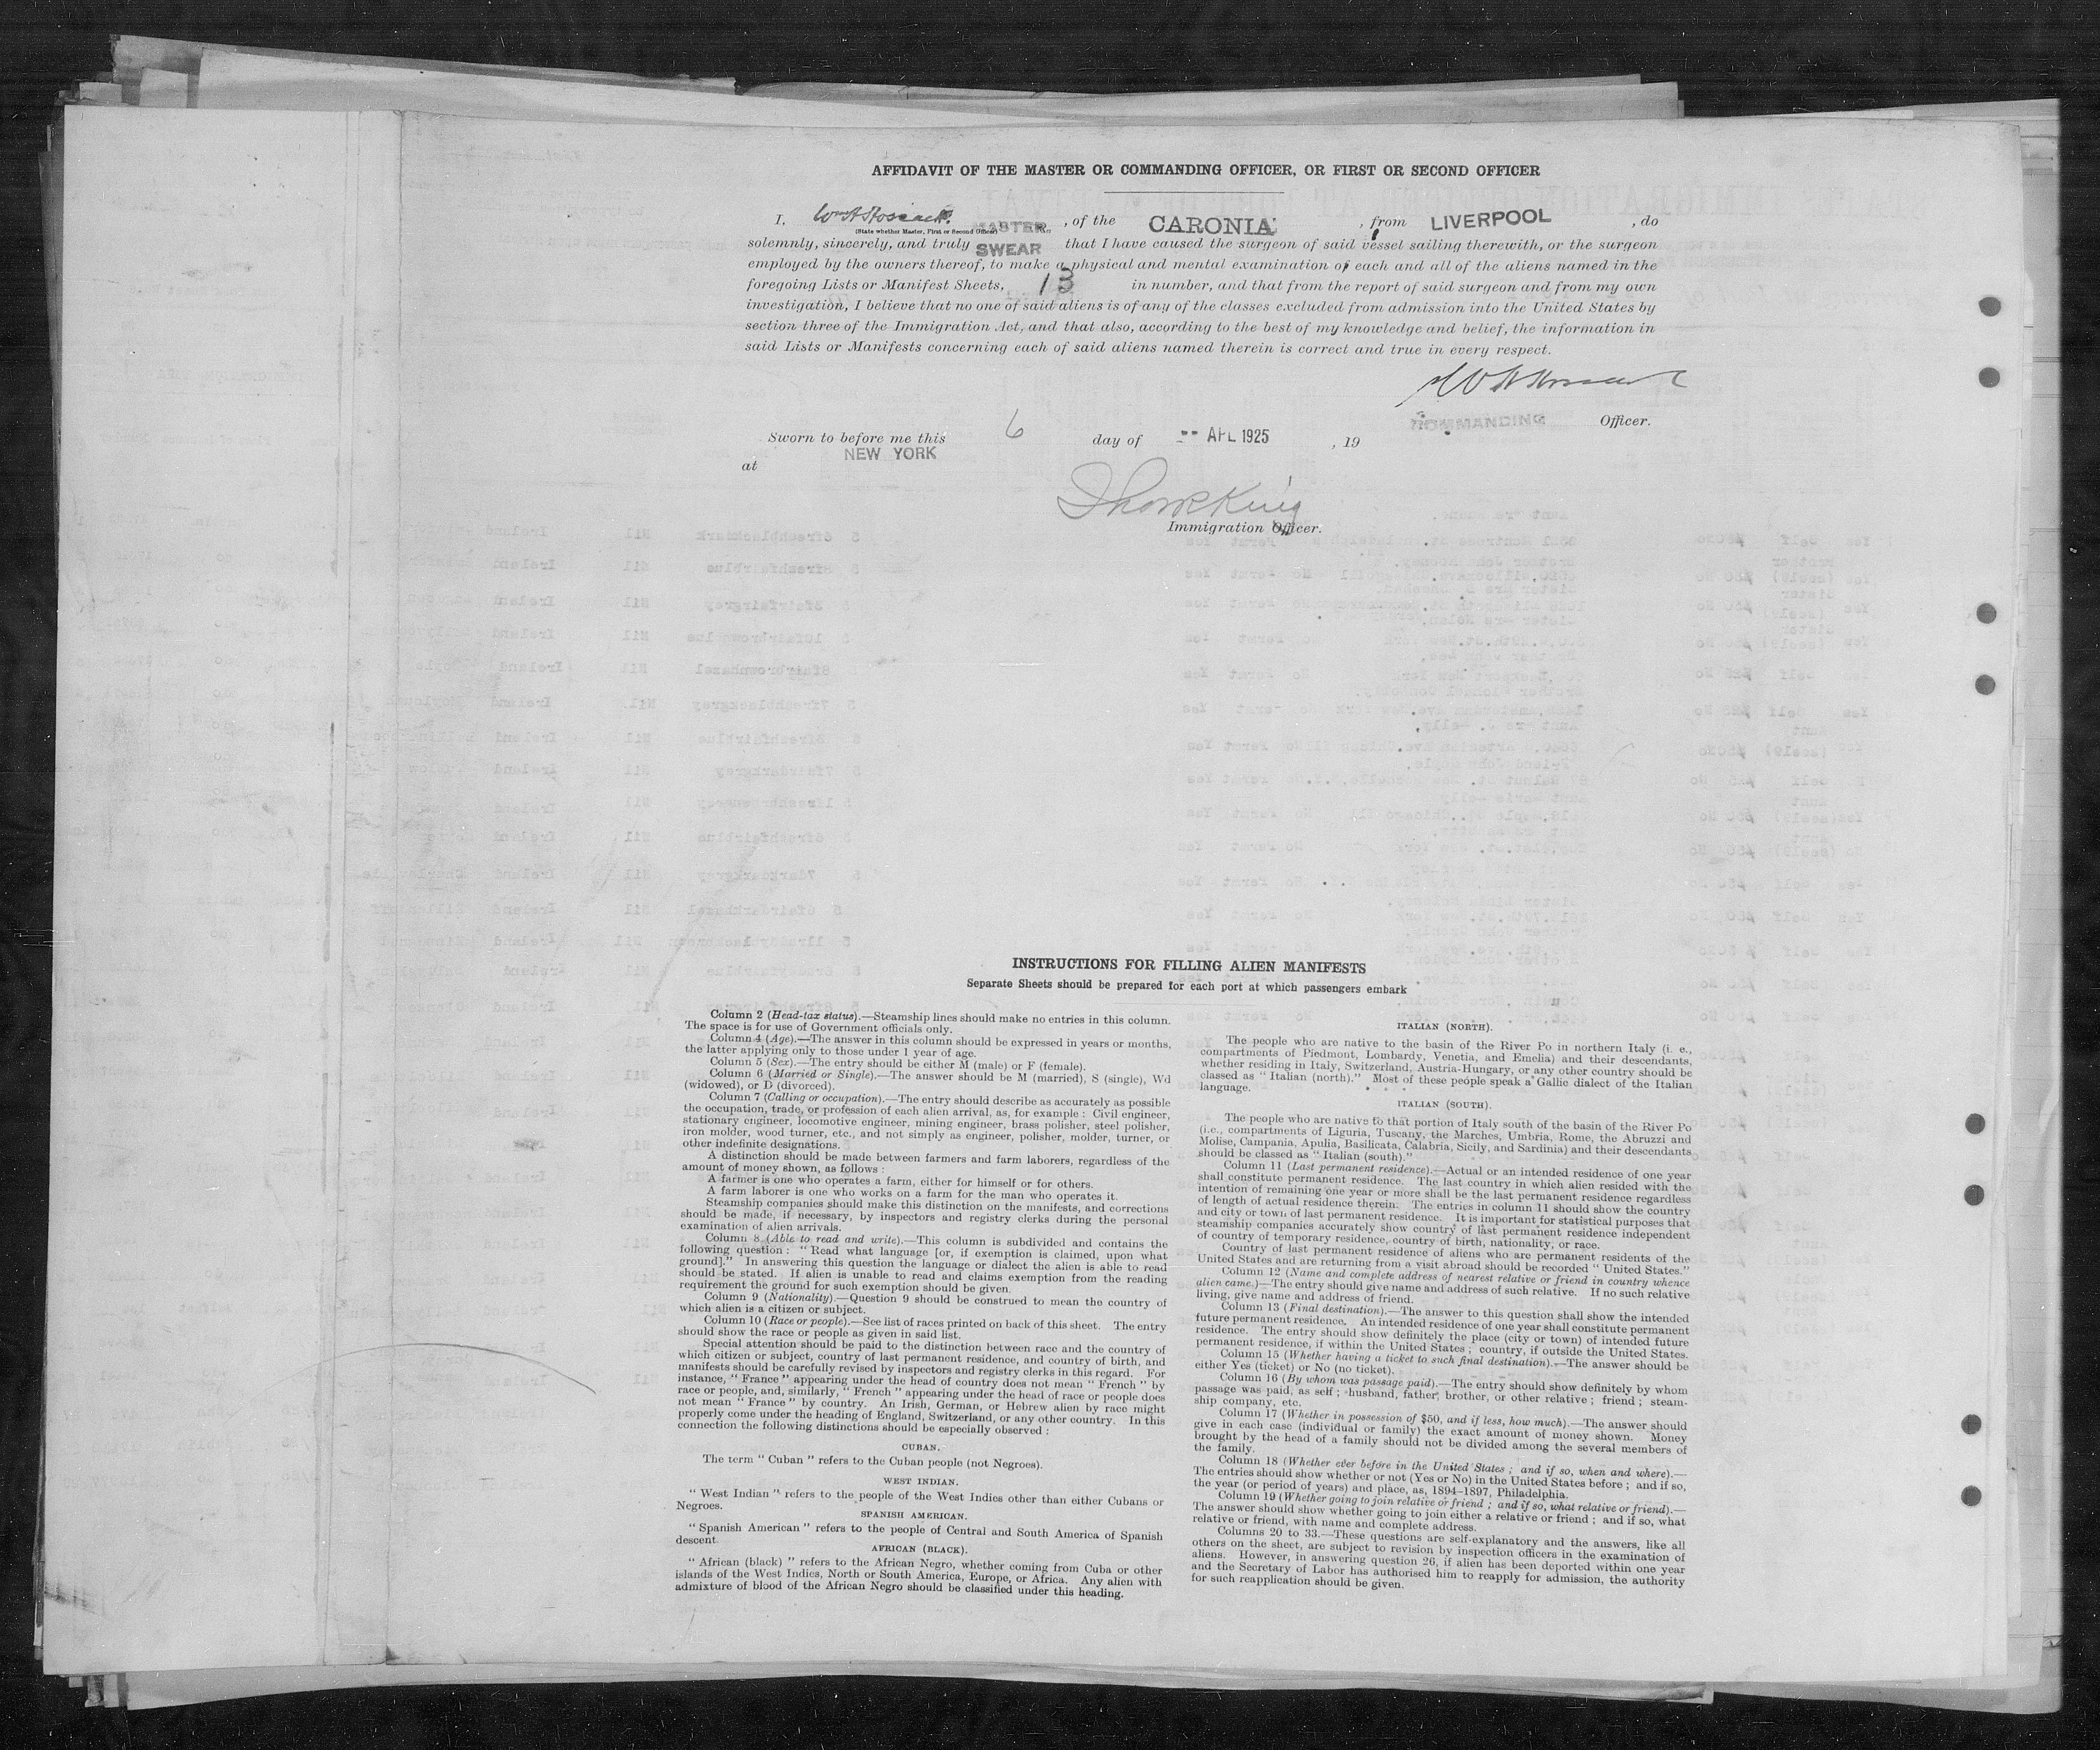 AFFIDAVIT OF THE MASTER OR COMMANDING OFFICER, OR FIRST OR SECOND OFFICER
I, MASTER, of the CARONIA, from LIVERPOOL, do
(State whether Master, First or Second Officer)
solemnly, sincerely, and truly SWEAR that I have caused the surgeon of said vessel sailing therewith, or the surgeon
employed by the owners thereof, to make a physical and mental examination of each and all of the aliens named in the
foregoing Lists or Manifest Sheets, 13 in number, and that from the report of said surgeon and from my own
investigation, I believe that no one of said aliens is of any of the classes excluded from admission into the United States by
section three of the Immigration Act, and that also, according to the best of my knowledge and belief, the information in
said Lists or Manifests concerning each of said aliens named therein is correct and true in every respect.
COMMANDING Officer.
Sworn to before me this 6 day of APL 1925, 19
at NEW YORK
Immigration Officer.
INSTRUCTIONS FOR FILLING ALIEN MANIFESTS
Separate Sheets should be prepared for each port at which passengers embark
Column 2 (Head-tax status).—Steamship lines should make no entries in this column.
The space is for use of Government officials only.
Column 4 (Age).—The answer in this column should be expressed in years or months,
the latter applying only to those under 1 year of age.
Column 5 (Sex).—The entry should be either M (male) or F (female).
Column 6 (Married or Single).—The answer should be M (married), S (single), Wd
(widowed), or D (divorced).
Column 7 (Calling or occupation).—The entry should describe as accurately as possible
the occupation, trade, or profession of each alien arrival, as, for example : Civil engineer,
stationary engineer, locomotive engineer, mining engineer, brass polisher, steel polisher,
iron molder, wood turner, etc., and not simply as engineer, polisher, molder, turner, or
other indefinite designations.
A distinction should be made between farmers and farm laborers, regardless of the
amount of money shown, as follows :
A farmer is one who operates a farm, either for himself or for others.
A farm laborer is one who works on a farm for the man who operates it.
Steamship companies should make this distinction on the manifests, and corrections
should be made, if necessary, by inspectors and registry clerks during the personal
examination of alien arrivals.
Column 8 (Able to read and write).—This column is subdivided and contains the
following question : " Read what language [or, if exemption is claimed, upon what
ground]." In answering this question the language or dialect the alien is able to read
should be stated. If alien is unable to read and claims exemption from the reading
requirement the ground for such exemption should be given.
Column 9 (Nationality).—Question 9 should be construed to mean the country of
which alien is a citizen or subject.
Column 10 (Race or people).—See list of races printed on back of this sheet. The entry
should show the race or people as given in said list.
Special attention should be paid to the distinction between race and the country of
which citizen or subject, country of last permanent residence, and country of birth, and
manifests should be carefully revised by inspectors and registry clerks in this regard. For
instance, " France " appearing under the head of country does not mean " French " by
race or people, and, similarly, " French " appearing under the head of race or people does
not mean " France " by country. An Irish, German, or Hebrew alien by race might
properly come under the heading of England, Switzerland, or any other country. In this
connection the following distinctions should be especially observed :
CUBAN.
The term " Cuban " refers to the Cuban people (not Negroes).
WEST INDIAN.
" West Indian " refers to the people of the West Indies other than either Cubans or
Negroes.
SPANISH AMERICAN.
" Spanish American " refers to the people of Central and South America of Spanish
descent.
AFRICAN (BLACK).
" African (black) " refers to the African Negro, whether coming from Cuba or other
islands of the West Indies, North or South America, Europe, or Africa. Any alien with
admixture of blood of the African Negro should be classified under this heading.
ITALIAN (NORTH).
The people who are native to the basin of the River Po in northern Italy (i. e.,
compartments of Piedmont, Lombardy, Venetia, and Emelia) and their descendants,
whether residing in Italy, Switzerland, Austria-Hungary, or any other country should be
classed as " Italian (north)." Most of these people speak a Gallic dialect of the Italian
language.
ITALIAN (SOUTH).
The people who are native to that portion of Italy south of the basin of the River Po
(i.e., compartments of Liguria, Tuscany, the Marches, Umbria, Rome, the Abruzzi and
Molise, Campania, Apulia, Basilicata, Calabria, Sicily, and Sardinia) and their descendants
should be classed as " Italian (south)."
Column 11 (Last permanent residence).—Actual or an intended residence of one year
shall constitute permanent residence. The last country in which alien resided with the
intention of remaining one year or more shall be the last permanent residence regardless
of length of actual residence therein. The entries in column 11 should show the country
and city or town of last permanent residence. It is important for statistical purposes that
steamship companies accurately show country of last permanent residence independent
of country of temporary residence, country of birth, nationality, or race.
Country of last permanent residence of aliens who are permanent residents of the
United States and are returning from a visit abroad should be recorded " United States."
Column 12 (Name and complete address of nearest relative or friend in country whence
alien came.)—The entry should give name and address of such relative. If no such relative
living, give name and address of friend.
Column 13 (Final destination).—The answer to this question shall show the intended
future permanent residence. An intended residence of one year shall constitute permanent
residence. The entry should show definitely the place (city or town) of intended future
permanent residence, if within the United States ; country, if outside the United States.
Column 15 (Whether having a ticket to such final destination).—The answer should be
either Yes (ticket) or No (no ticket).
Column 16 (By whom was passage paid).—The entry should show definitely by whom
passage was paid, as self ; husband, father, brother, or other relative ; friend ; steam-
ship company, etc.
Column 17 (Whether in possession of $50, and if less, how much).—The answer should
give in each case (individual or family) the exact amount of money shown. Money
brought by the head of a family should not be divided among the several members of
the family.
Column 18 (Whether ever before in the United States ; and if so, when and where).—
The entries should show whether or not (Yes or No) in the United States before ; and if so,
the year (or period of years) and place, as, 1894-1897, Philadelphia.
Column 19 (Whether going to join relative or friend ; and if so, what relative or friend).—
The answer should show whether going to join either a relative or friend ; and if so, what
relative or friend, with name and complete address.
Columns 20 to 33.—These questions are self-explanatory and the answers, like all
others on the sheet, are subject to revision by inspection officers in the examination of
aliens. However, in answering question 26, if alien has been deported within one year
and the Secretary of Labor has authorised him to reapply for admission, the authority
for such reapplication should be given.